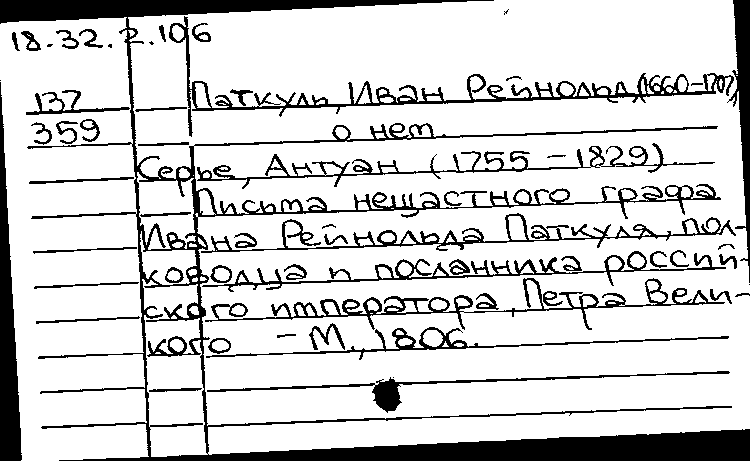 18.32.2.106
137 Паткуль, Иван Рейнольд, (1660-1707)
359 о нем.
Серье, Антуан (1755-1829)
Письма нещастного графа
Ивана Рейнольда Паткуля, пол-
ководца и посланника россий-
ского императора, Петра Вели-
кого - М., 1806.